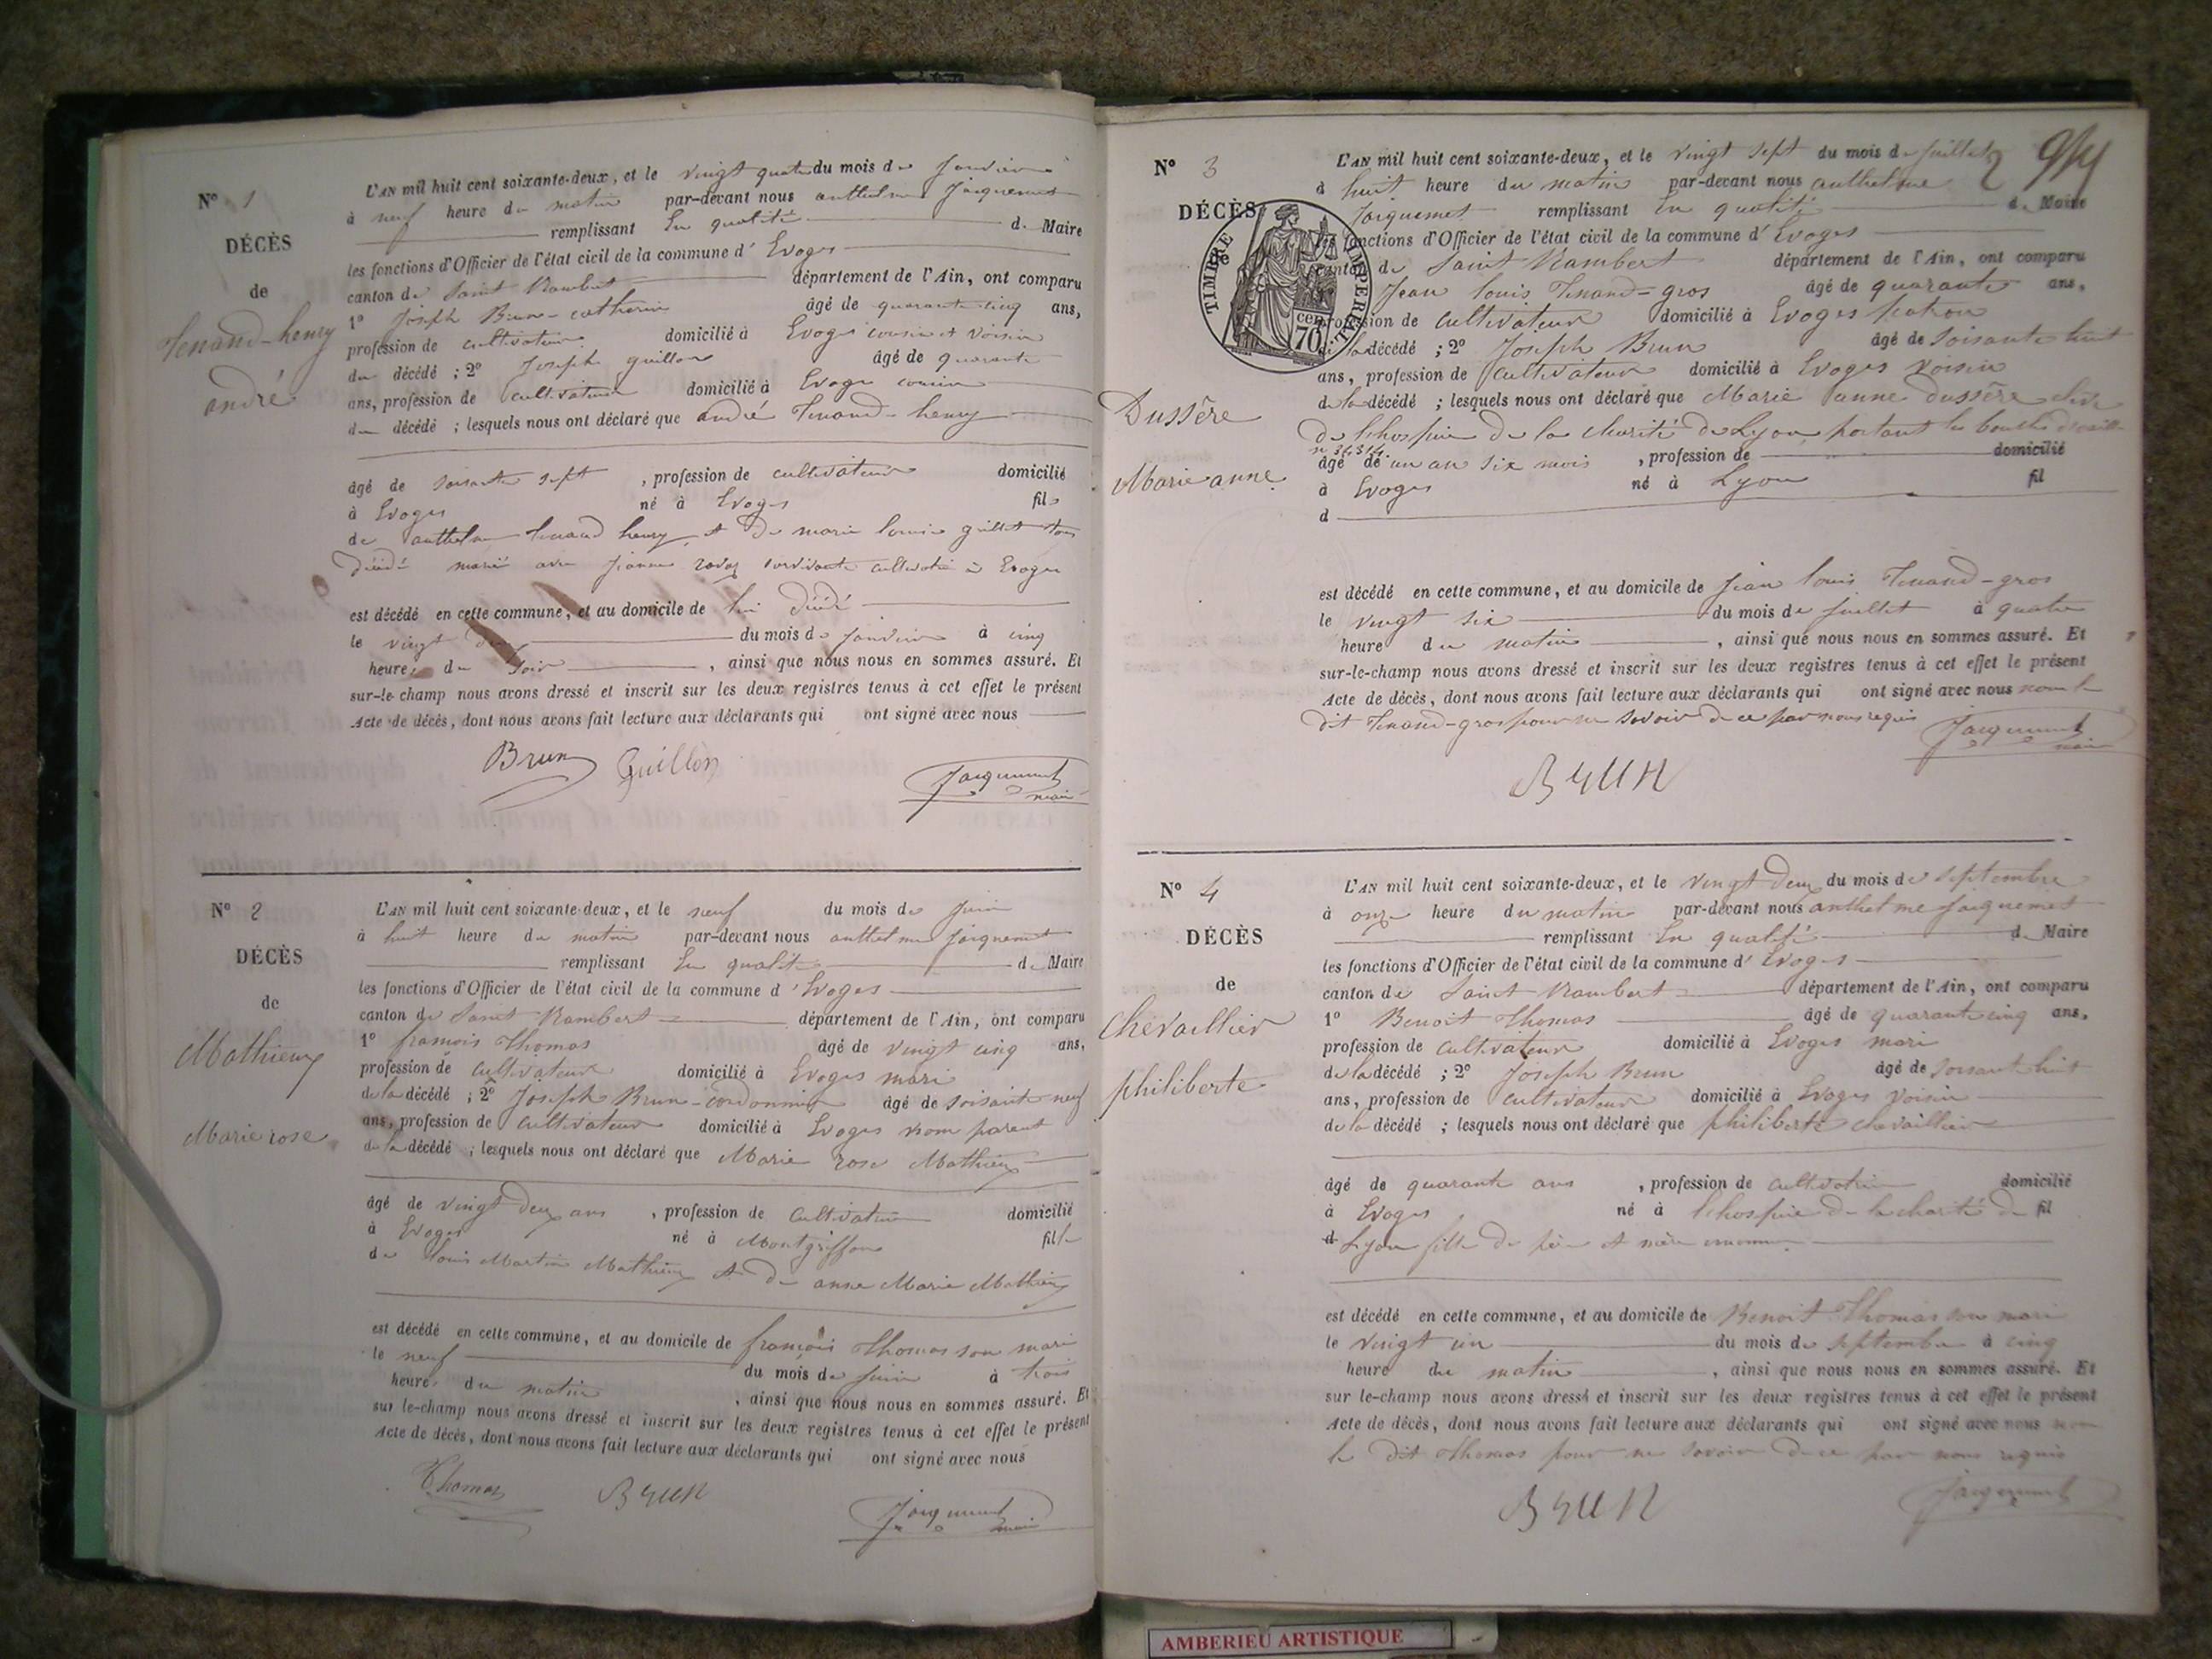 N° 1
DÉCÈS
de
Tenand-henry
andré
L'AN mil huit cent soixante-deux, et le vingt quatre du mois de Janvier
à neuf heure du matin par-devant nous anthelme Jacquemet
remplissant En qualité de Maire
les fonctions d'Officier de l'état civil de la commune d'Evoges
canton de Saint Rambert département de l'Ain, ont comparu
1° Joseph Brun-catherin âgé de quarante cinq ans,
profession de cultivateur domicilié à Evoges cousin et voisin
du décédé ; 2° Joseph guillon âgé de quarante
ans, profession de cultivateur domicilié à Evoges cousin
du décédé ; lesquels nous ont déclaré que andré Tenand-henry
âgé de soixante sept , profession de cultivateur domicilié
à Evoges né à Evoges fils
de anthelme tenand henry et de marie louise guillet tous
décédé marié avec jeanne ravaz survivante cultivatrice à Evoges
est décédé en cette commune, et au domicile de lui décédé
le vingt du mois de janvier à cinq
heures du soir , ainsi que nous nous en sommes assuré. Et
sur-le-champ nous avons dressé et inscrit sur les deux registres tenus à cet effet le présent
Acte de décès, dont nous avons fait lecture aux déclarants qui ont signé avec nous
Brun Guillon Jacquemet maire
N° 2
DÉCÈS
de
Mathieux
Marie rose
L'AN mil huit cent soixante-deux, et le neuf du mois de Juin
à huit heure du matin par-devant nous anthelme Jacquemet
remplissant En qualité de Maire
les fonctions d'Officier de l'état civil de la commune d'Evoges
canton de Saint Rambert département de l'Ain, ont comparu
1° francois Thomas âgé de vingt cinq ans,
profession de cultivateur domicilié à Evoges mari
de la décédé ; 2° Joseph Brun-cordonnier âgé de soixante neuf
ans, profession de cultivateur domicilié à Evoges non parent
de la décédé ; lesquels nous ont déclaré que Marie rose Mathieux
âgé de vingt deux ans , profession de cultivatrice domicilié
à Evoges né à Montgriffon fille
de Louis Martin Mathieux et de anne Marie Mathieux
est décédé en cette commune, et au domicile de francois Thomas son mari
le neuf du mois de juin à trois
heures du matin , ainsi que nous nous en sommes assuré. Et
sur le-champ nous avons dressé et inscrit sur les deux registres tenus à cet effet le présent
Acte de décès, dont nous avons fait lecture aux déclarants qui ont signé avec nous
Thomas Brun Jacquemet maire
N° 3
DÉCÈS
Dussêre
Marie anne
TIMBRE IMPERIAL
70 cen
2
L'AN mil huit cent soixante-deux, et le vingt sept du mois de Juillet
à huit heure du matin par-devant nous anthelme
Jacquemet remplissant En qualité de Maire
les fonctions d'Officier de l'état civil de la commune d'Evoges
canton de Saint Rambert département de l'Ain, ont comparu
Jean louis Tenand-gros âgé de quarante ans,
profession de cultivateur domicilié à Evoges patron
de la décédé ; 2° Joseph Brun âgé de soixante huit
ans, profession de cultivateur domicilié à Evoges voisin
de la décédé ; lesquels nous ont déclaré que Marie anne dussêre
de lhospice de la charité de Lyon portant la boucle
âgé de un an six mois , profession de domicilié
à Evoges né à Lyon fil
d
est décédé en cette commune, et au domicile de Jean louis Tenand-gros
le vingt six du mois de juillet à quatre
heure du matin , ainsi que nous nous en sommes assuré. Et
sur-le-champ nous avons dressé et inscrit sur les deux registres tenus à cet effet le présent
Acte de décès, dont nous avons fait lecture aux déclarants qui ont signé avec nous non le
dit Tenand-gros pour ne savoir de ce par nous requis
Jacquemet maire
Brun
N° 4
DÉCÈS
de
Chevaillier
philiberte
L'AN mil huit cent soixante-deux, et le vingt deux du mois de septembre
à onze heure du matin par-devant nous anthelme Jacquemet
remplissant En qualité de Maire
les fonctions d'Officier de l'état civil de la commune d'Evoges
canton de Saint Rambert département de l'Ain, ont comparu
1° Benoit Thomas âgé de quarante cinq ans,
profession de cultivateur domicilié à Evoges mari
de la décédé ; 2° Joseph Brun âgé de soixante huit
ans, profession de cultivateur domicilié à Evoges voisin
de la décédé ; lesquels nous ont déclaré que philiberte chevaillier
âgé de quarante ans , profession de cultivatrice domicilié
à Evoges né à lhospice de la charité de fil
d Lyon fille de père et mère
est décédé en cette commune, et au domicile de Benoit Thomas son mari
le vingt un du mois de septembre à cinq
heure du matin , ainsi que nous nous en sommes assuré. Et
sur le-champ nous avons dressé et inscrit sur les deux registres tenus à cet effet le présent
Acte de décès, dont nous avons fait lecture aux déclarants qui ont signé avec nous non
le dit Thomas pour ne savoir de ce par nous requis
Brun Jacquemet
AMBERIEU ARTISTIQUE